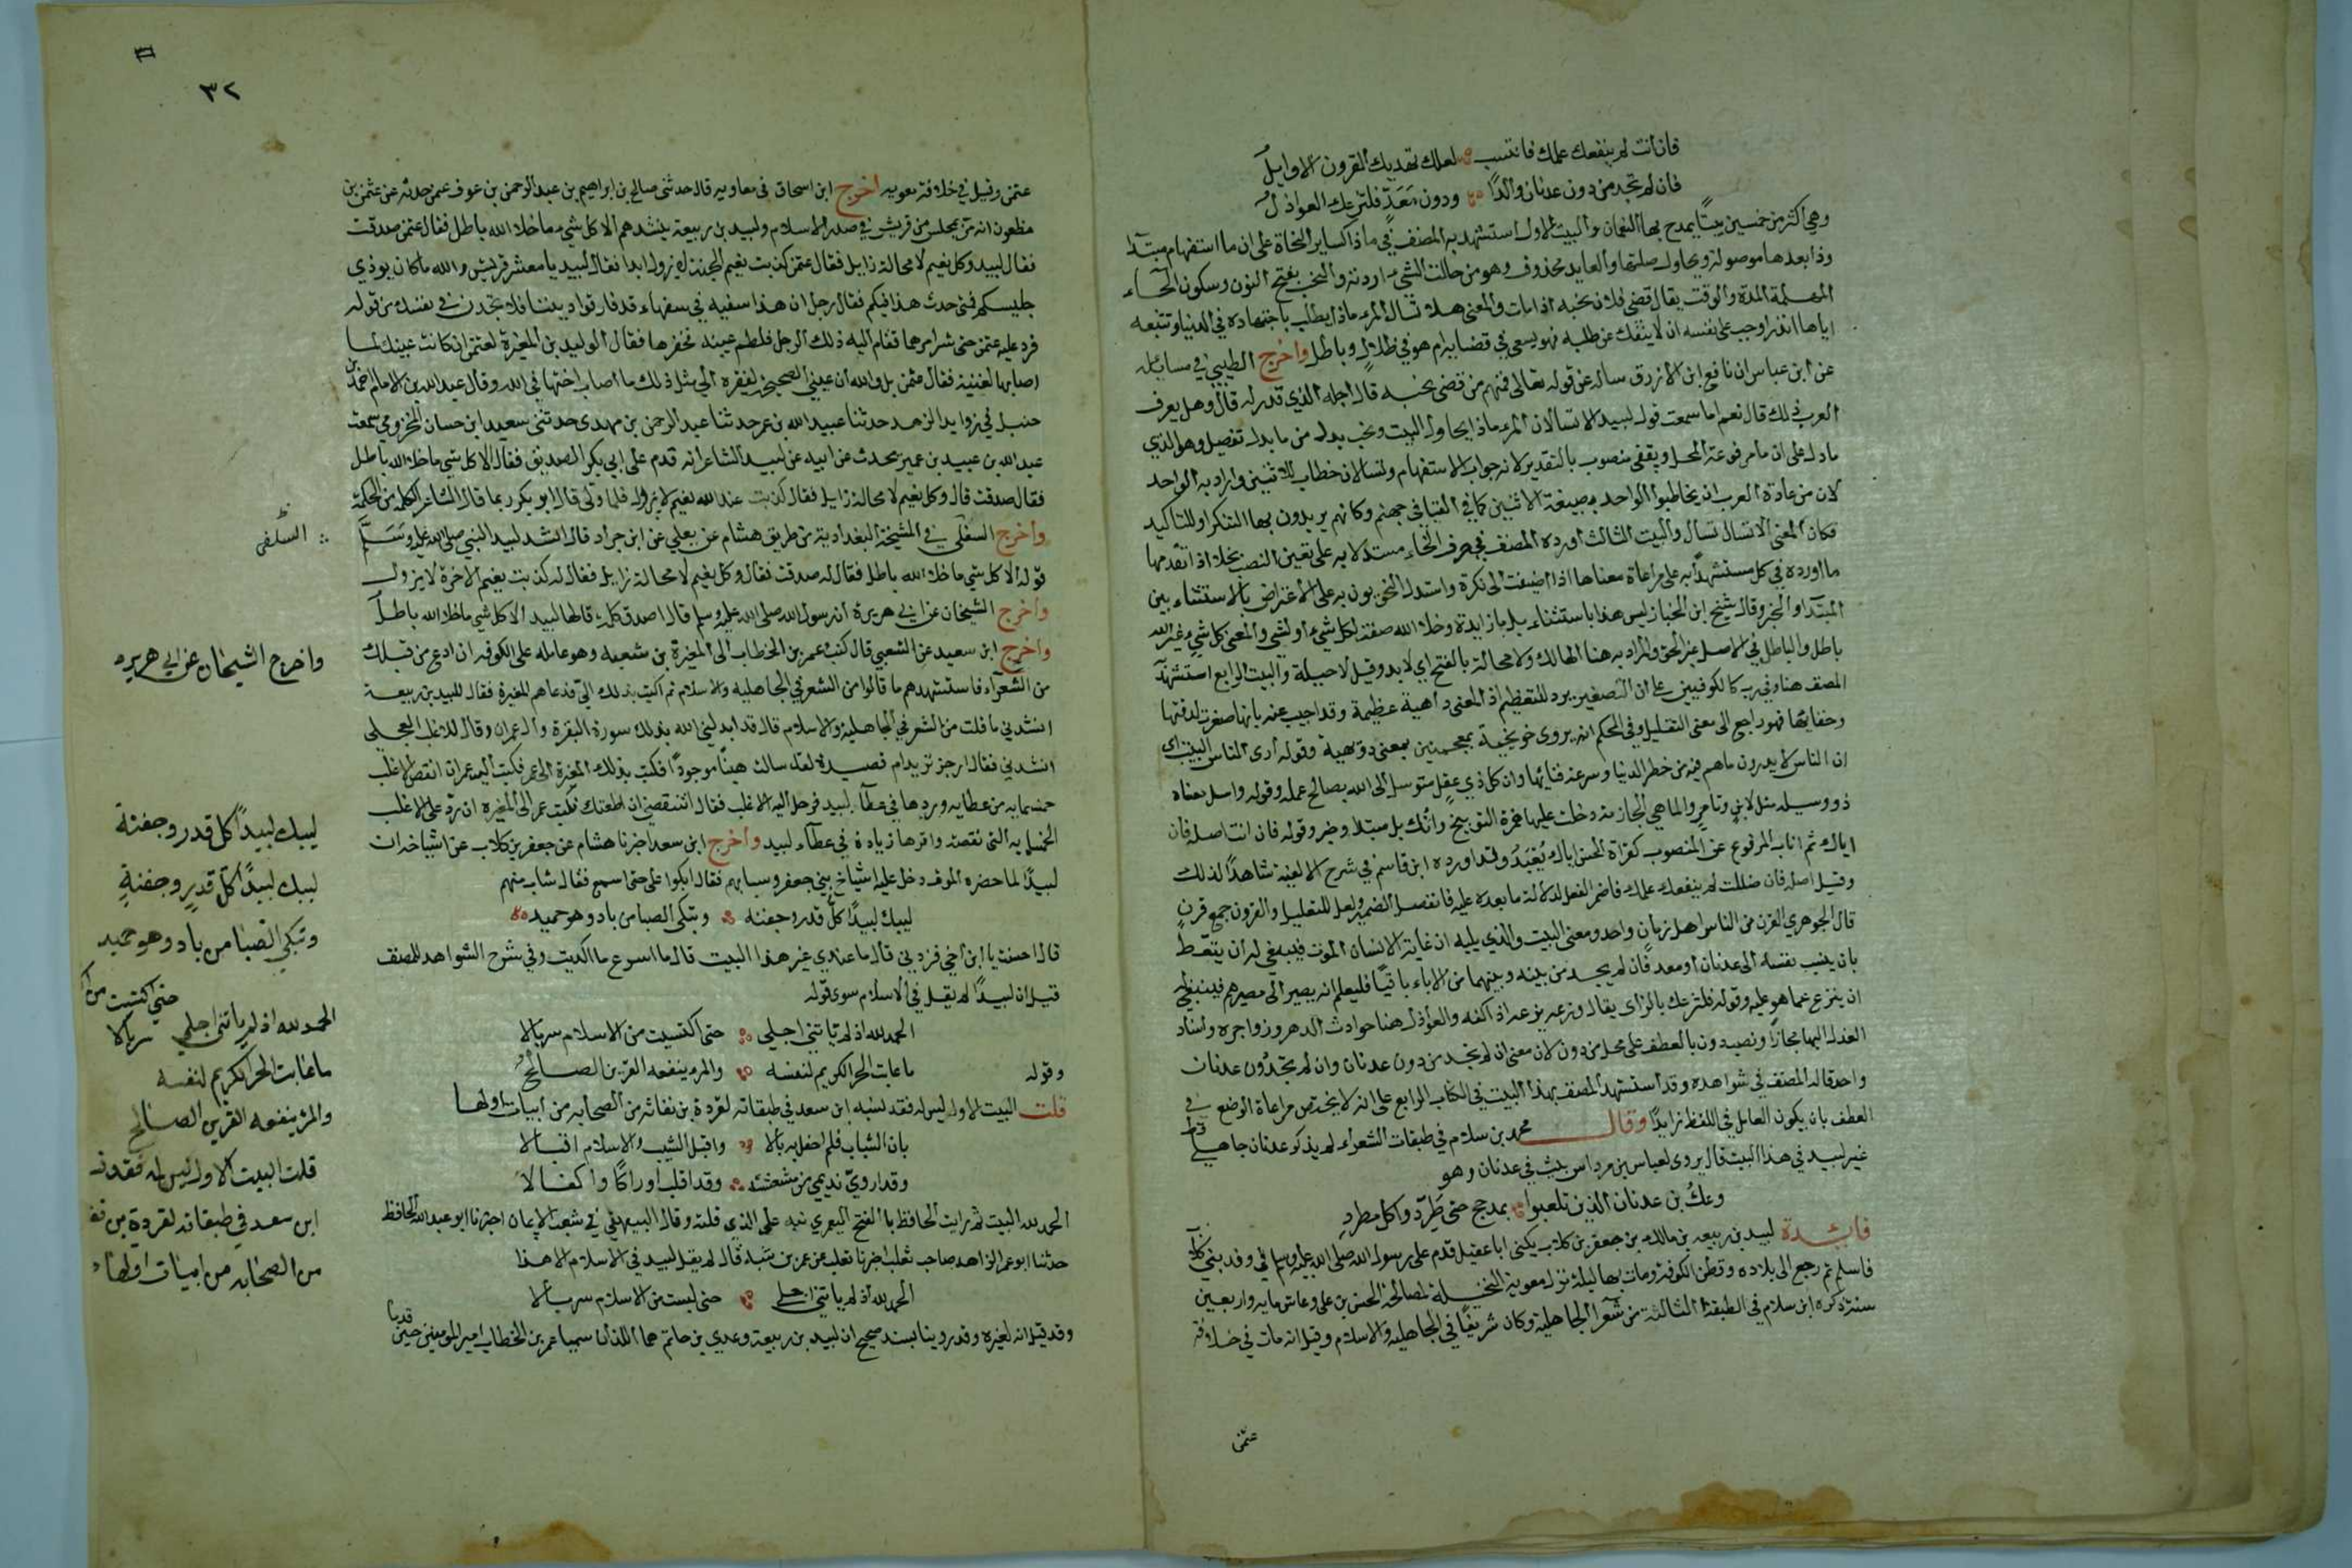 فان انت لم ينفعك علمك فانتسب لعلك تهديك القرون الاوايل
فان لم تجد من دون عدنان والدًا ودون مَعَدّ فلتزعك العواذل
وهي اكثر من خمسين بيتًا يمدح بها النعمان والبيت الاول استشهد به المصنف في ماذا كساير النحاة على ان ما استفهام مبتدأ
وذا بعدها موصولة ويحاول صلتها والعايد محذوف وهو من حاولت الشيء اردته والنحب بفتح النون وسكون الحاء
المهملة المدة والوقت يقال قضى فلان نحبه اذا مات والمعنى هلا تسال المرء ماذا يطلب باجتهاده في الدنيا وتتبعه
اياها انذرا وجب على نفسه ان لا ينفك عن طلبه فهو يسعى في قضايه ام هو في ظلال وباطل واخرج الطيبي في مسائله
عن ابن عباس ان نافع ابن الازرق ساله عن قوله تعالى فمنهم من قضى نحبه قال اجله الذي قدر له قال وهل يعرف
العرب ذلك قال نعم اما سمعت قول لبيد الا تسالان المرء ماذا يحاول البيت ونحب بدل من ما بدل تفصيل وهو الذي
ما دل على ان ما مرفوعة المحل ويقضى منصوب بالتقدير لانه جواب الاستفهام وتسالان خطاب للاثنين واراد به الواحد
لان من عادة العرب ان يخاطبوا الواحد بصيغة الاثنين كما في القيا في جهنم وكانهم يريدون بها التكرار للتاكيد
فكان المعنى الا تسال تسال والبيت الثالث اورده المصنف في حرف الخاء مستدلا به على تعين النصب بخلا اذا تقدمها
ما اورده في كل مستشهدًا به على مراعاة معناها اذا اضيفت الى نكرة واستدل النحويون به على الاعتراض بالاستثناء بين
المبتدا والخبر وقال شيخ ابن الخباز ليس هذا باستثناء بل ما زايدة وخلا الله صفة لكل شيء او لشي والمعنى كل شيء غير الله
باطل والباطل في الاصل غير الحق والمراد به هنا الهالك ولا محالة بالفتح اي لا بد وقيل لا حيلة والبيت الرابع استشهد
المصنف هنا وفي رب كالكوفيين على ان التصغير يرد للتعظيم اذ المعنى داهية عظيمة وقد اجيب عنه بانها صغرت لدقتها
وخفائها فهو راجع الى معنى التقليل وفي المحكم انه يروى خويخية بمعجمتين بمعنى دويهية وقوله ارى الناس البيت اي
ان الناس لا يدرون ما هم فيه من خطر الدنيا وسرعة فنائها وان كل ذي عقل متوسل الى الله بصالح عمله وقوله واسل معناه
ذو وسيلة مثل لابن وتامر والما هي الحجازية دخلت عليها همزة التوبيخ وانك بل مبتدا وخبر وقوله فان انت اصله فان
اياك ثم اناب المرفوع عن المنصوب كقراة الحسن اياك يُعْبَدُ وقد اورده ابن قاسم في شرح الالفية شاهدًا لذلك
وقيل اصله فان ضللت لم ينفعك علمك فاضمر الفعل لدلالة ما بعده عليه فانفصل الضمير ولعل للتعليل والقرون جمع قرن
قال الجوهري القرن من الناس اهل زمان واحد ومعنى البيت والذي يليه ان غاية الانسان الموت فينبغي له ان يتعظ
بان ينسب نفسه الى عدنان او معد فان لم يجد من بينه وبينهما من الاباء باقيًا فليعلم انه يصير الى مصيرهم فينبغي
ان ينزع عما هو عليه وقوله فلتزعك بالزاي يقال وزعه يزعه اذا كفه والعواذل هنا حوادث الدهر وزواجره واسناد
العذل اليها مجازًا ونصب دون بالعطف على محل من دون لان معنى ان لم تجد من دون عدنان وان لم تجد دون عدنان
واحد قاله المصنف في شواهده وقد استشهد المصنف بهذا البيت في الكتاب الرابع على انه لا يختص مراعاة الموضع في
العطف بان يكون العامل في اللفظ زايدًا وقال محمد بن سلام في طبقات الشعراء لم يذكر عدنان جاهلي قط
غير لبيد في هذا البيت قال يروى لعباس بن مرداس بيت في عدنان وهو
وعكُ بن عدنان الذين تلعبوا بمذحج حتى طَرِدّوا كل مطرد
فايدة لبيد بن ربيعة بن مالك بن جعفر بن كلاب يكنى ابا عقيل قدم على رسول الله صلى الله عليه وسلم في وفد بني كلاب
فاسلم ثم رجع الى بلاده وقطن الكوفة ومات بها ليلة نزل معوية النخيلة لمصالحة الحسن بن علي وعاش ماية واربعين
سنة ذكره ابن سلام في الطبقة الثالثة من شعرا الجاهلية وكان شريفًا في الجاهلية والاسلام وقيل انه مات في خلافة
عثمن
٣٢
عثمن وقيل في خلافة معوية اخرج ابن اسحاق في مغازيه قال حدثني صالح بن ابراهيم بن عبد الرحمن بن عوف عمن حدثه عن عثمن بن
مظعون انه مرّ بمجلس من قريش في صدر الاسلام ولبيد بن ربيعة ينشدهم الا كل شيء ما خلا الله باطل فقال عثمن صدقت
فقال لبيد وكل نعيم لا محالة زايل فقال عثمن كذبت نعيم الجنة لا يزول ابدا فقال لبيد يا معشر قريش والله ما كان يوذي
جليسكم فمتى حدث هذا فيكم فقال رجل ان هذا سفيه في سفهاء قد فارقوا ديننا فلا تجدن في نفسك من قوله
فرد عليه عثمن حتى شرا مرهما فقام اليه ذلك الرجل فلطم عينه فخضرها فقال الوليد بن المغيرة لعثمن ان كانت عينك لما
اصابها لغنية فقال عثمن بل والله ان عيني الصحيحة لفقرة الى مثل ذلك ما اصاب اختها في الله وقال عبد الله بن الامام احمد بن
حنبل في زوايد الزهد حدثنا عبيد الله بن عمر حدثنا عبد الرحمن بن مهدي حدثني سعيد ابن حسان المخزومي سمعت
عبد الله بن عبيد بن عمير يحدث عن ابيه عن لبيد الشاعر انه قدم على ابي بكر الصديق فقال الا كل شي ما خلا الله باطل
فقال صدقت قال وكل نعيم لا محالة زايل فقال كذبت عند الله نعيم لا يزول فلما ولى قال ابو بكر ربما قال الشاعر الكلمة من الحكمة
واخرج السلفي في المشيخة البغدادية من طريق هشام عن يعلي عن ابن جراد قال انشد لبيد النبي صلى الله عليه وسَلَّم
قوله الا كل شي ما خلا الله باطل فقال له صدقت فقال وكل نعيم لا محالة زايل فقال له كذبت نعيم الاخرة لا يزول
واخرج الشيخان عن ابي هريرة ان رسول الله صلى الله عليه وسلم قال اصدق كلمة قالها لبيد الا كل شي ما خلا الله باطل
واخرج ابن سعيد عن الشعبي قال كتب عمر بن الخطاب الى المغيرة بن شعبة وهو عامله على الكوفة ان ادع من قبلك
من الشعراء فاستنشدهم ما قالوا من الشعر في الجاهلية والاسلام ثم اكتب بذلك اليّ فدعاهم المغيرة فقال للبيد بن ربيعة
انشدني ما قلت من الشعر في الجاهلية والاسلام قال قد ابدلني الله بذلك سورة البقرة وال عمران وقال للاغلب العجلي
انشدني فقال ارجز تريد ام قصيدة لقد سالت هينًا موجودًا فكتب بذلك المغيرة الى عمر فكتب اليه عمر ان انقص الاغلب
خمسماية من عطايه وزدها في عطآء لبيد فرحل اليه الاغلب فقال اتنقصني ان اطعتك فكتب عمر الى المغيرة ان رد على الاغلب
الخمسماية التي نقصته واقرها زيادة في عطآء لبيد واخرج ابن سعد اخبرنا هشام عن جعفر بن كلاب عن اشياخه ان
لبيدًا لما حضره الموت دخل عليه اشياخ بني جعفر وشبابهم فقال ابكوا علي حتى اسمع فقال شاب منهم
ليبك لبيدًا كل قدر وجفنه وتبكى الصبا من باد وهو حميد
قال احسنت يا ابن اخي فزدني قال ما عندي غير هذا البيت قال ما اسرع ما اكديت وفي شرح الشواهد للمصنف
قيل ان لبيدًا لم يقل في الاسلام سوى قوله
الحمد لله اذ لم ياتني اجلي حتى اكتسيت من الاسلام سربالا
وقوله ما عاتب الحر الكريم لنفسه والمرء ينفعه القرين الصالح
قلت البيت الاول ليس له فقد نسبه ابن سعد في طبقاته لقردة بن نفاثة من الصحابه من ابيات اولها
بان الشباب فلم احفل به بالا واقبل الشيب والاسلام اقبالا
وقد اروّي نديمي من مشعشعة وقد اقلب اوراكًا واكفالا
الحمد لله البيت ثم رايت الحافظ با الفتح اليعمري نبه على الذي قلته وقال البيهقي في شعب الايمان اخبرنا ابو عبد الله الحافظ
حدثنا ابو عمر الزاهد صاحب ثعلب اخبرنا ثعلب عن عمر بن شبة قال لم يقل لبيد في الاسلام الا هذا
الحمد لله اذ لم ياتني اجلي حتى لبست من الاسلام سربالا
وقد قيل انه لغيره وقد روينا بسند صحيح ان لبيد بن ربيعة وعدي بن حاتم هما اللذان سميا عمر بن الخطاب امير المومنين حين قدما
السلفى
واخرج الشيخان عن ابي هريره
ليبك لبيدًا كل قدر وجفنة
ليبك لبيدًا كلّ قدرٍ وجفنةٍ
وتبكي الصبا من باد وهو حميد
حتى اكتسيت من
الحمد لله اذ لم ياتني اجلي سربالا
ما عاتب الحر الكريم لنفسه
والمرء ينفعه القرين الصالح
قلت البيت الاول ليس له فقد
ابن سعد في طبقاته لقردة بن
من الصحابه من ابيات اولها